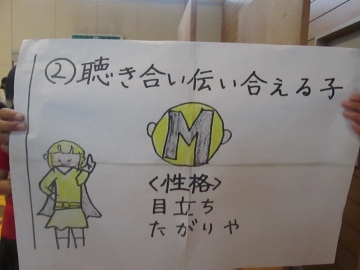 ②聴き合い伝い合える子
M
<性格>
目立ち
たがりや